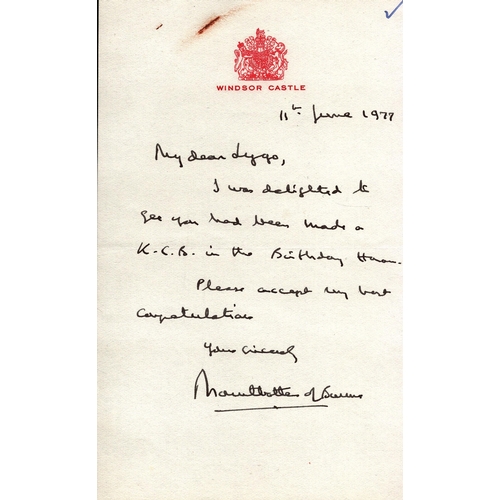 WINDSOR CASTLE
11th June 1977
My dear Lygo,
I was delighted to
see you had been made a
K.C.B. in the Birthday Honours.
Please accept my best
congratulations
Yours sincerely
Mountbatten of Burma